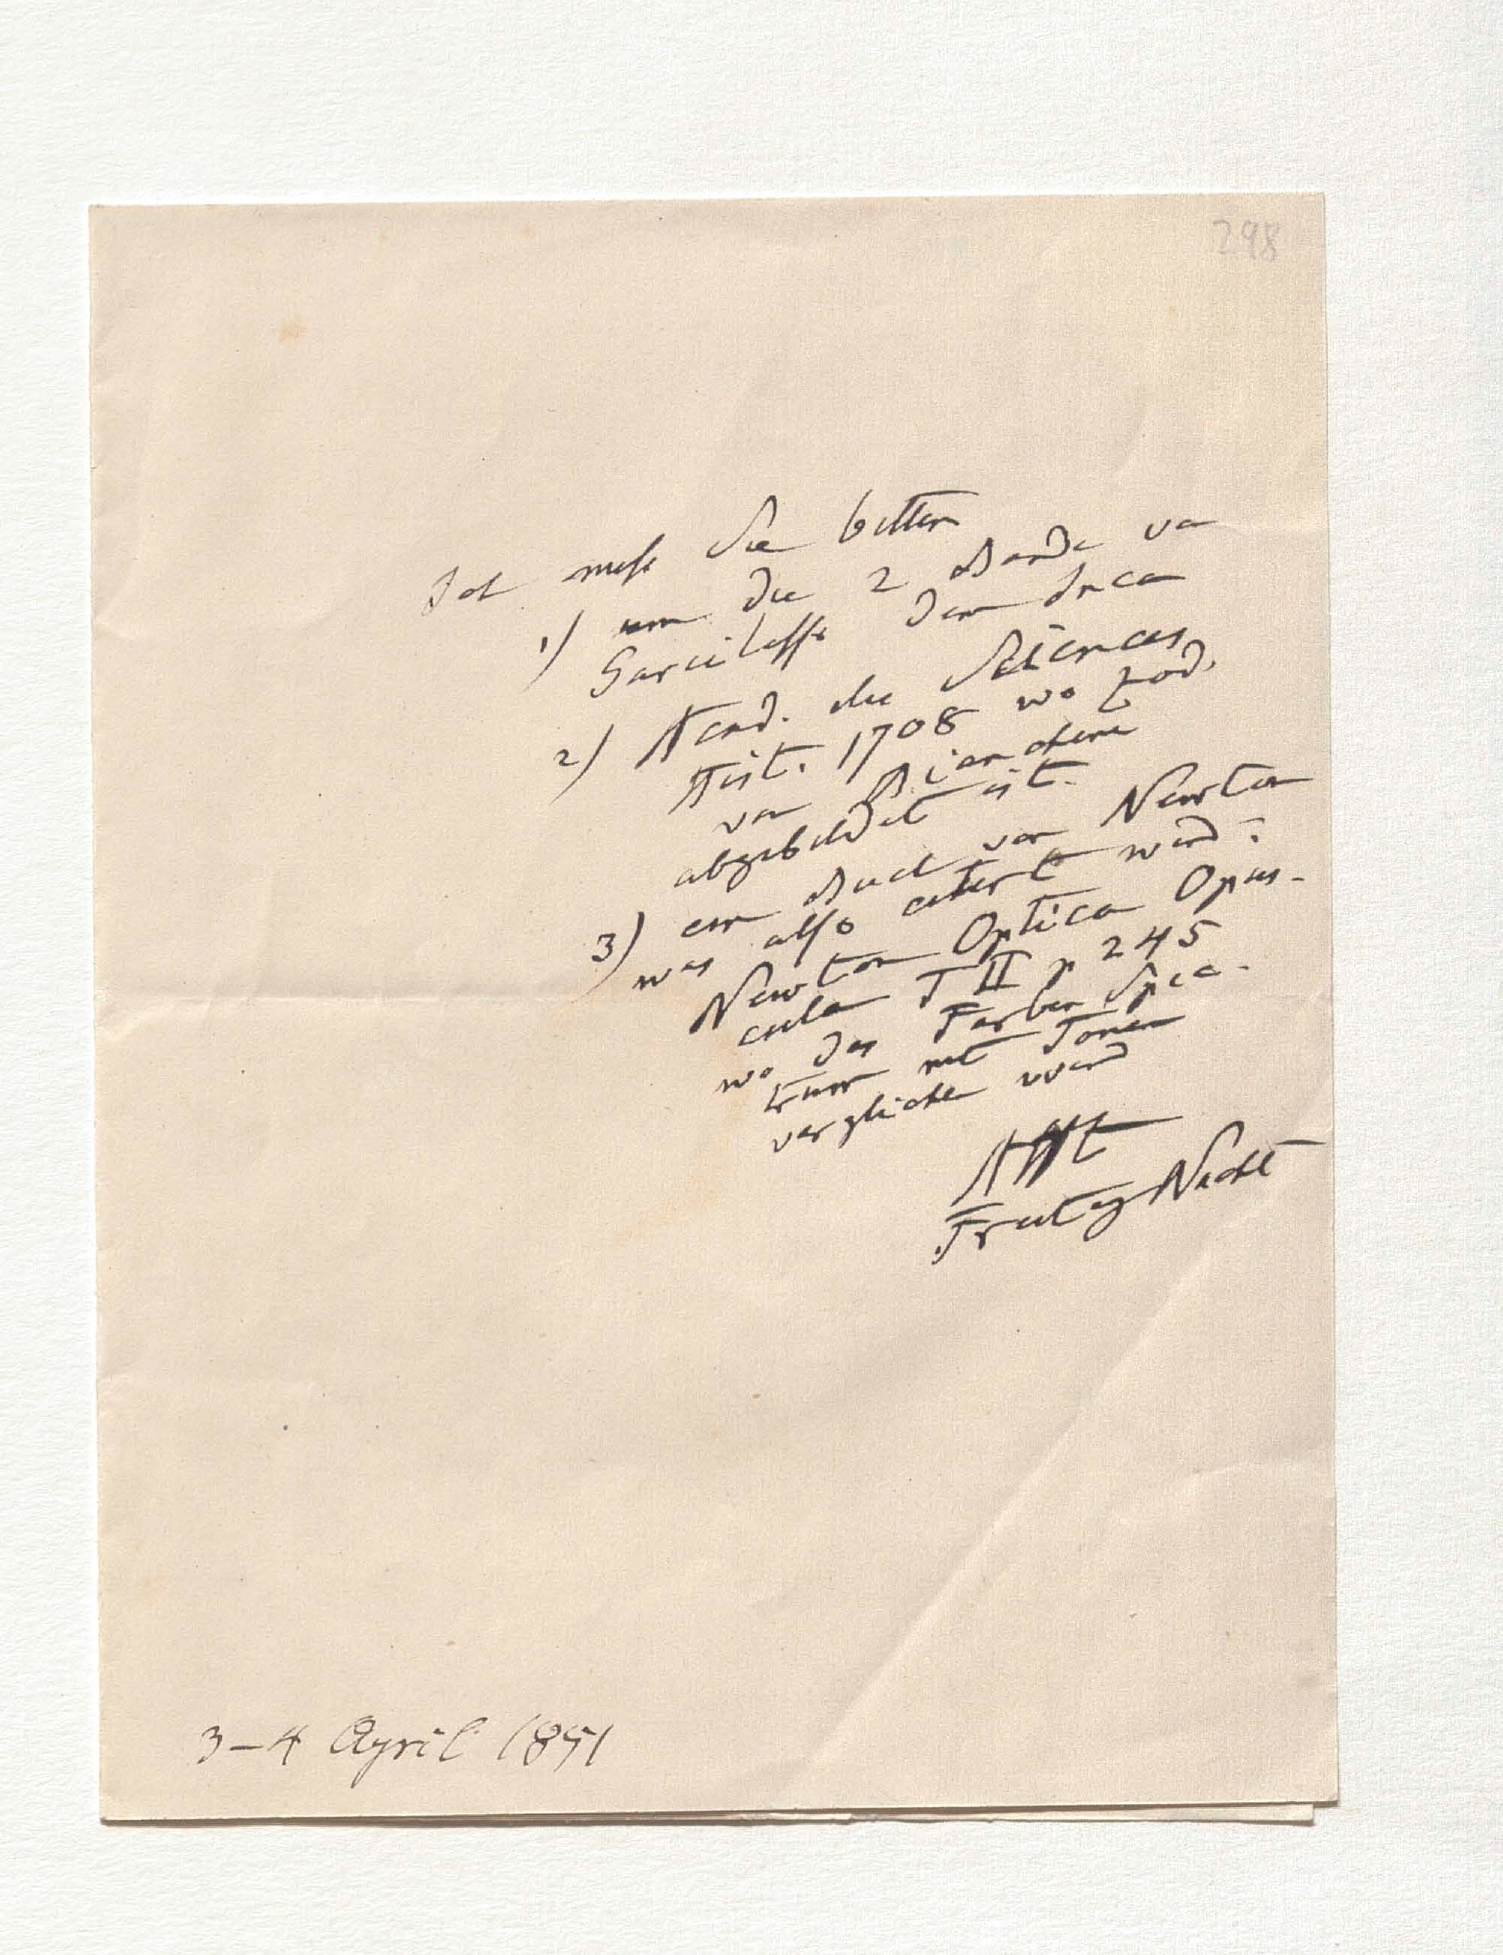 298
Ich muß Sie bitten
1) um die 2 Bande von
Garcilasso den Inca
2) Acad. des Sciences
Hist. 1708 wo Zod.
von Bianchini
abgebildet ist.
3) ein Buch von Newton
was also citirt wird:
Newton Optica Opus-
cula T II p 245
wo das Farben Spec-
trum mit Tonen
verglichen wird
AHt
Freitag Nacht
3-4 April 1851